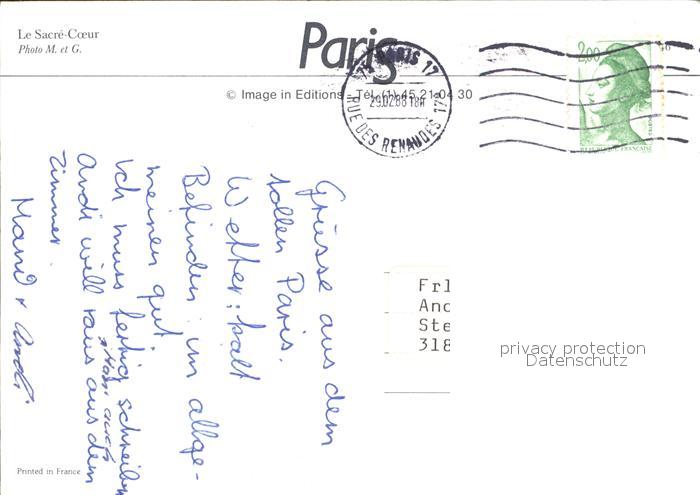 Le Sacré-Cœur
Photo M. et G.
Paris
© Image in Editions - Tél. (1) 45 21 04 30
75 PARIS 17
29.02.88 18H
RUE DES RENAUDES 17e
2,00
REPUBLIQUE FRANÇAISE
Grüsse aus dem
tollen Paris.
Wetter: kalt
Befinden: im allge-
meinen gut.
Ich muss fertig schreiben
Andi will raus aus dem
Zimmer.
Frl
And
Ste
318
privacy protection
Datenschutz
Printed in France